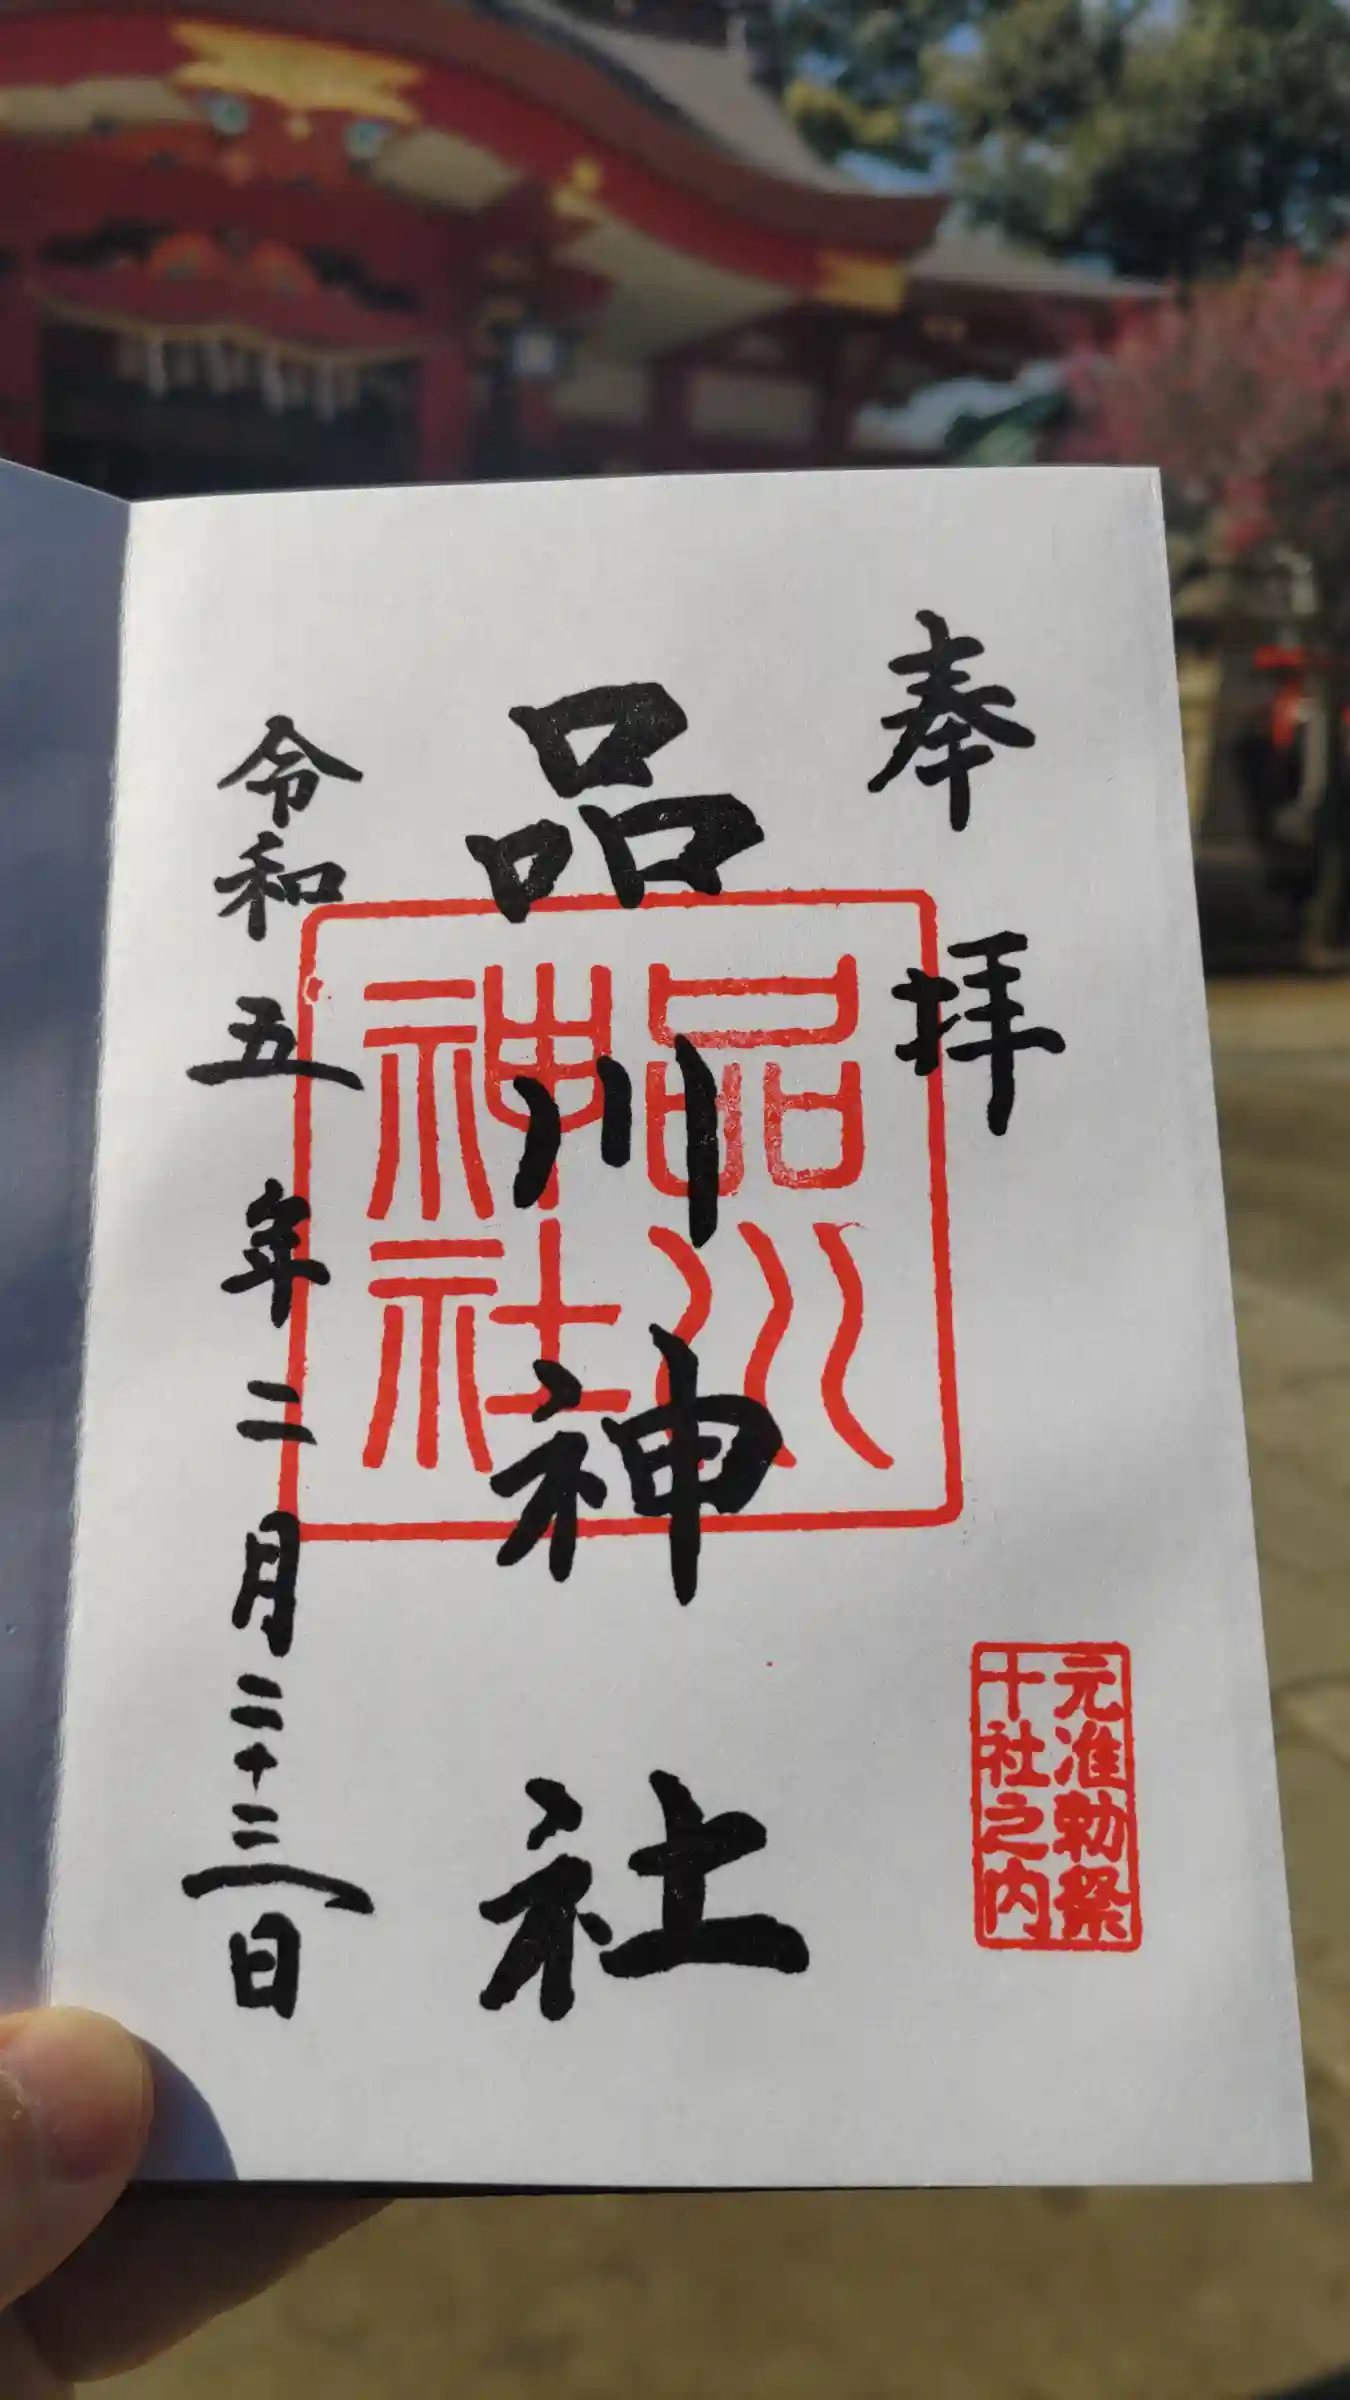 奉拝
品川神社
品川
神社
元准勅祭
十社之内
令和五年二月二十三日